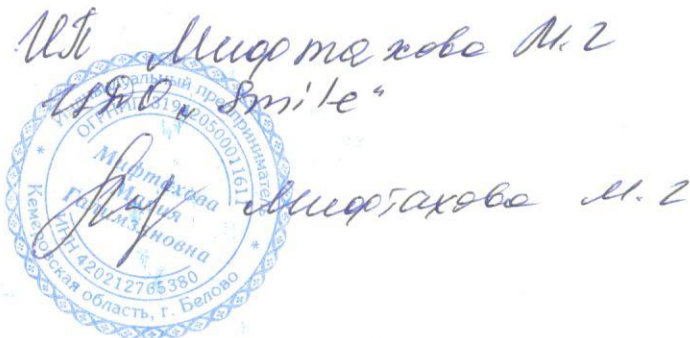 ИП Мифтахова М.г
ЦДО „Smile“
Мифтахова М.г
Индивидуальный предприниматель
ОГРНИП 319205000
Мифтахова
Мария
ИНН 420212765380
Кемеровская область, г. Белово